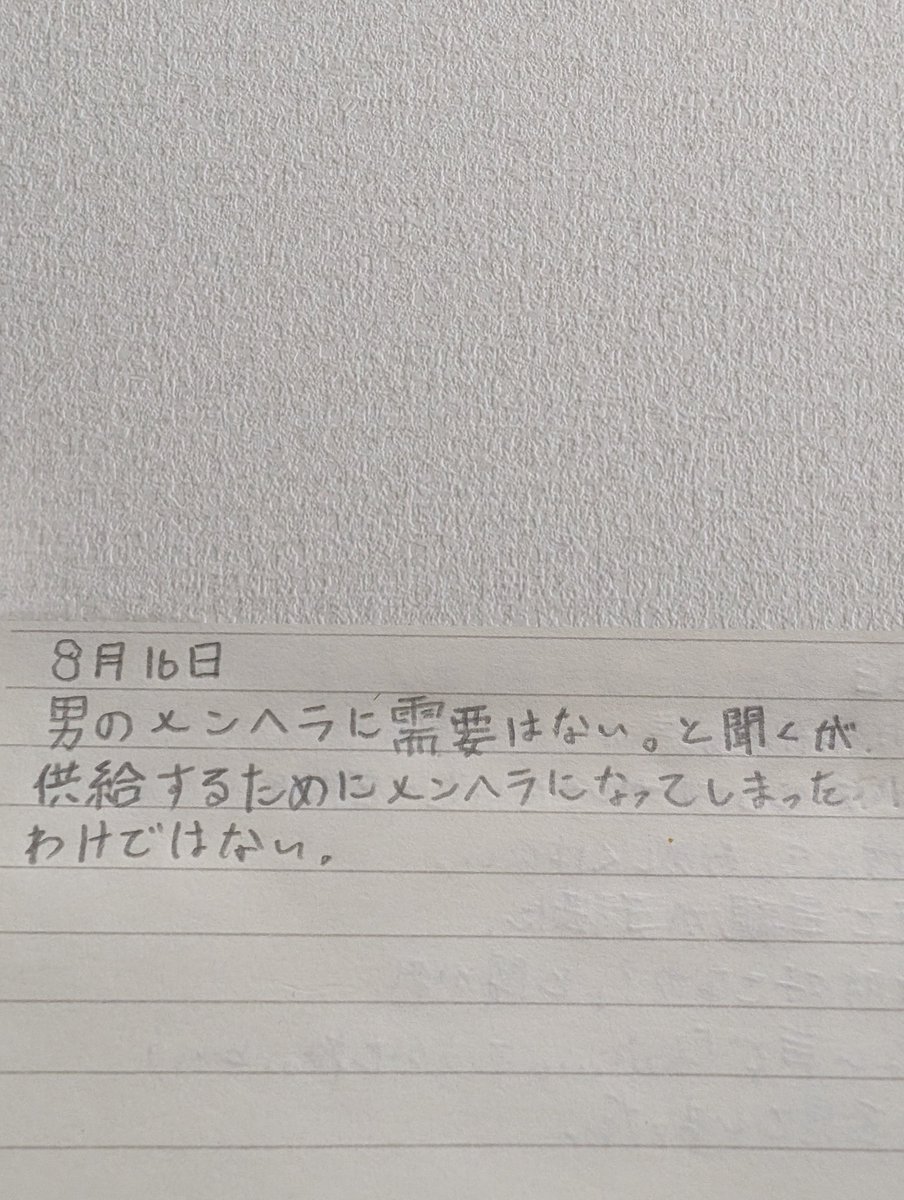 8月16日
男のメンヘラに需要はない。と聞くが
供給するためにメンヘラになってしまった
わけではない。